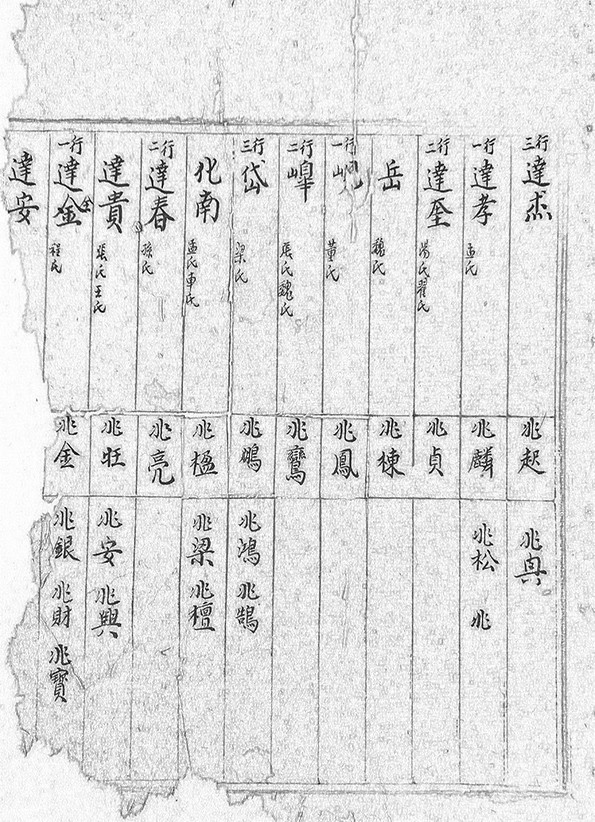 三行 達杰 兆起 兆真
一行 達孝 孟氏 兆麟 兆松 兆
二行 達 氏翟氏 兆貞
岳 魏氏 兆棟
一行 董氏 兆鳳
二行 張氏魏氏 兆鸞
三行 岱 梁氏 兆 兆鴻 兆鵠
化南 孟氏車氏 兆楹 兆梁 兆檀
二行 達春 孫氏 兆亮
達貴 張氏王氏 兆旺 兆安 兆興
一行 達金 全 程氏 兆金 兆銀 兆財 兆寶
達安